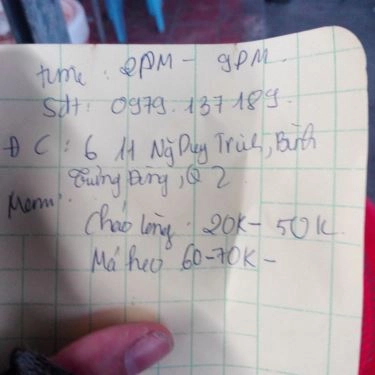 time : 2PM - 9PM.
Sđt: 0979.137189.
Đ C : 6 11 Ng Duy Trinh, Bình
Trưng Đông, Q 2
Menu:
Cháo lòng. 20K- 50K.
Má heo 60-70K-